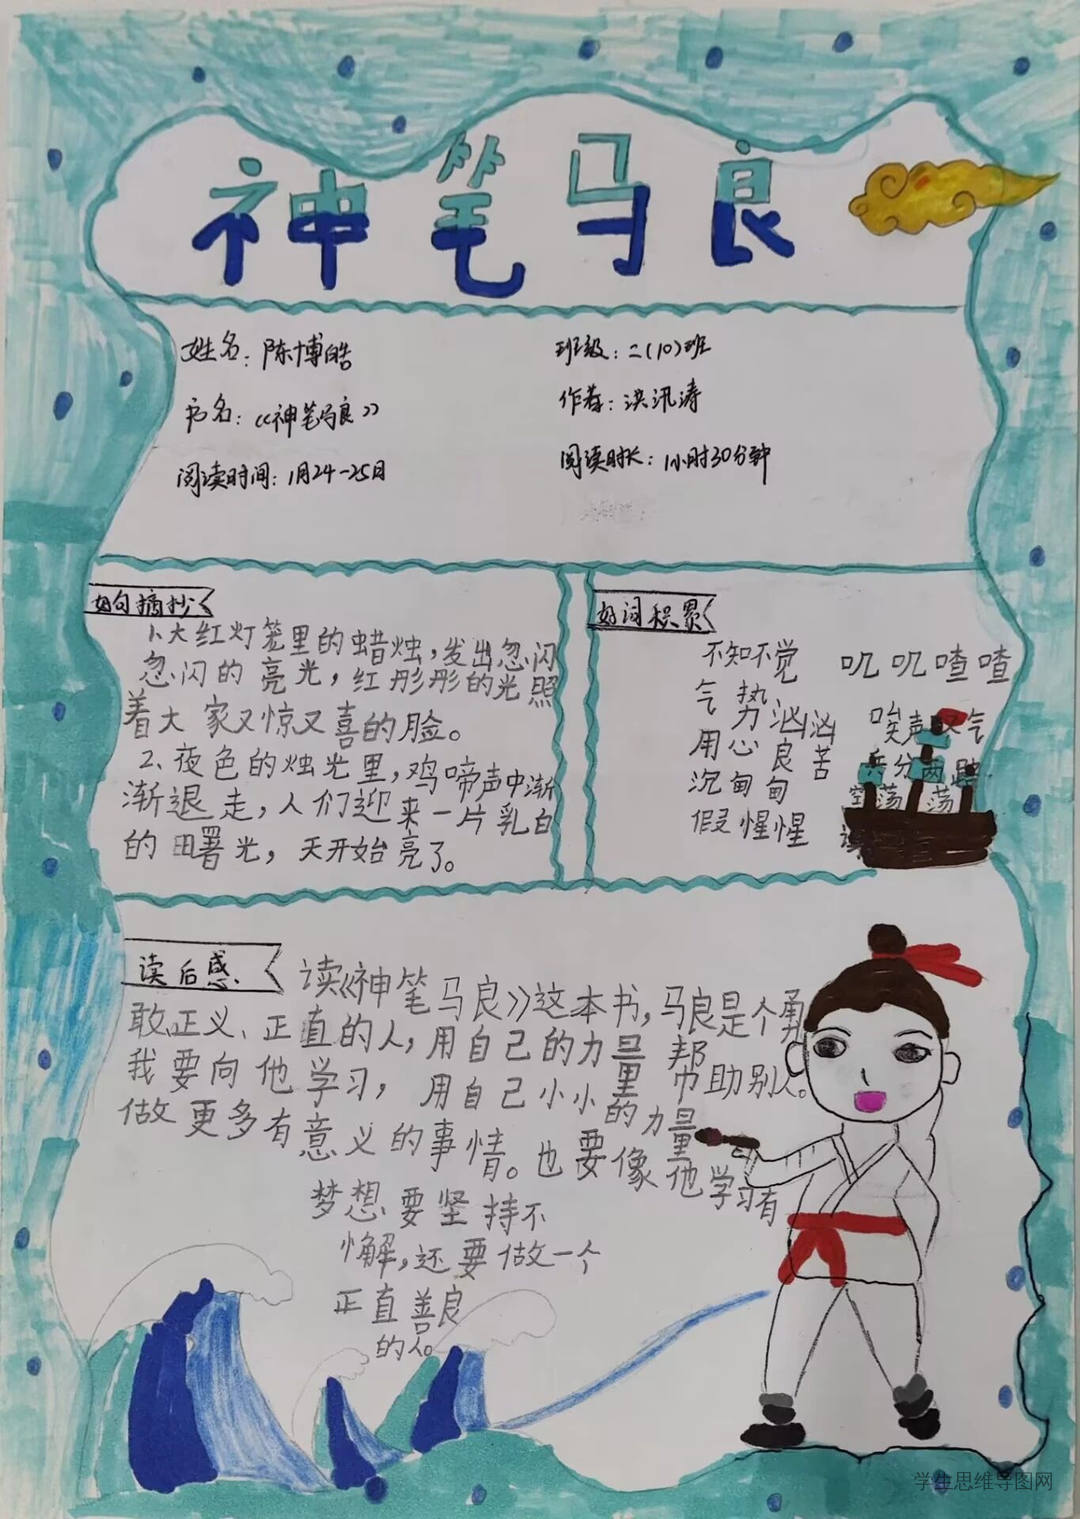 神笔马良
姓名：陈博皓
班级：二(10)班
书名：《神笔马良》
作者：洪汛涛
阅读时间：1月24-25日
阅读时长：1小时30分钟
好句摘抄
1、大红灯笼里的蜡烛，发出忽闪
忽闪的亮光，红彤彤的光照
着大家又惊又喜的脸。
2、夜色的烛光里，鸡啼声中渐
渐退走，人们迎来一片乳白
的曙光，天开始亮了。
好词积累
不知不觉
叽叽喳喳
气势汹汹
唉声叹气
用心良苦
兵分两路
沉甸甸
空荡荡
假惺惺
读后感
读《神笔马良》这本书，马良是个勇
敢、正义、正直的人，用自己的力量帮助别人。
我要向他学习，用自己小小的力量
做更多有意义的事情。也要像他学习有
梦想要坚持不
懈，还要做一个
正直善良
的人。
学生思维导图网